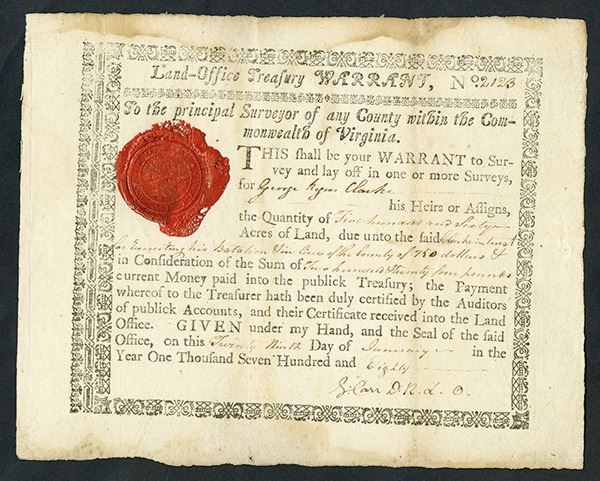 Land-Office Treasury WARRANT, No 2123
To the principal Surveyor of any County within the Com-
monwealth of Virginia.
THIS shall be your WARRANT to Sur-
vey and lay off in one or more Surveys,
for George Rogers Clarke
his Heirs or Assigns,
the Quantity of Five hundred and Sixty
Acres of Land, due unto the said Clarke in trust
for Recruiting his Batalion & in Lieu of the bounty of 750 dollars &
in Consideration of the Sum of two hundred twenty four pounds
current Money paid into the publick Treasury; the Payment
whereof to the Treasurer hath been duly certified by the Auditors
of publick Accounts, and their Certificate received into the Land
Office. GIVEN under my Hand, and the Seal of the said
Office, on this Twenty Ninth Day of January in the
Year One Thousand Seven Hundred and Eighty
Carr D. R. L. O.